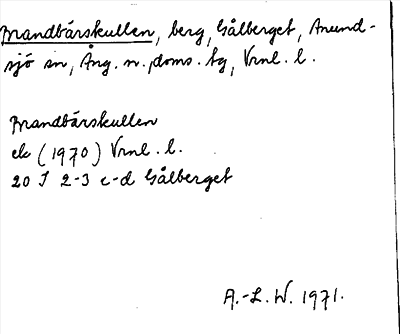 Brandbärskullen, berg, Gålberget, Anund-
sjö sn, Ång. n. doms. tg, Vrnl. l.
Brandbärskullen
ek (1970) Vrnl. l.
20 J 2-3 c-d Gålberget
A.-L. W. 1971.